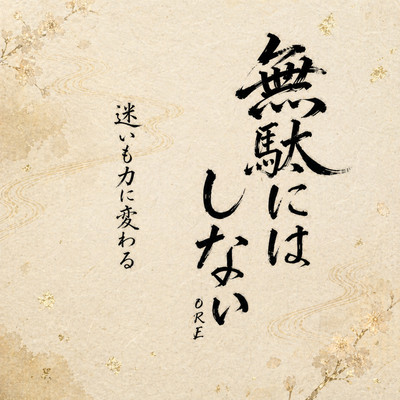 無駄には
しない
ORE
迷いも力に変わる